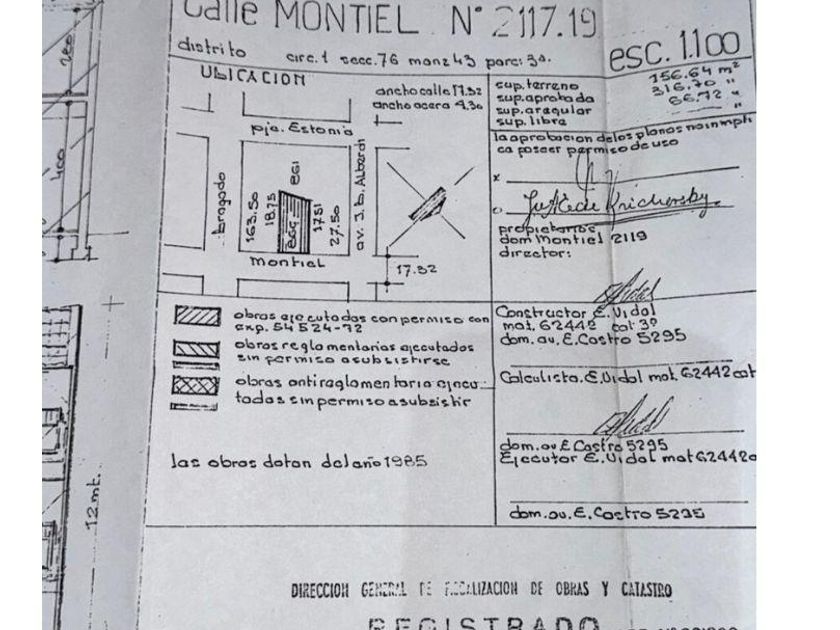 Calle MONTIEL Nº 2117.19
distrito circ.1 secc.76 manz 43 parc: 3a.
esc. 1.100
UBICACION
ancho calle 17.32
ancho acera 4.30
pje. Estonia
bragado
163.50
18.75
egi
egg
17.51
27.50
av. J. b. Alberdi
montiel
17.32
sup. terreno 156.64 m²
sup. aprobada 316.70 "
sup. aregular 66.72 "
sup. libre "
la aprobacion de los planos no impli
ca poseer permiso de uso
x
propietarios
dom Montiel 2119
director:
Constructor E. Vidal
mat. 62442 cat 3º
dom. av. E. Castro 5295
Calculista. E. Vidal mat. 62442 cat
dom. av E Castro 5295
Ejecutor E. Vidal mat 62442 c
dom. av. E. Castro 5295
obras ejecutadas con permiso con
exp. 54 524-72
obras reglamentarias ejecutadas
sin permiso a subsistirse
obras antireglamentaria ejecu-
tadas sin permiso a subsistir
las obras datan del año 1985
200
400
12 mt.
DIRECCION GENERAL DE FISCALIZACION DE OBRAS Y CATASTRO
REGISTRADO